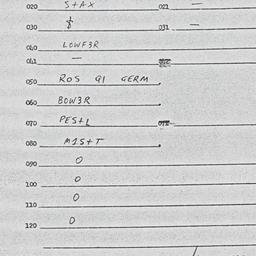 020 S+AX 021 —
030 $ 031 —
040 LOWF3R
041 —
050 ROS 91 GERM
060 BOW3R
070 PES+L
080 M1S+T
090 0
100 0
110 0
120 0